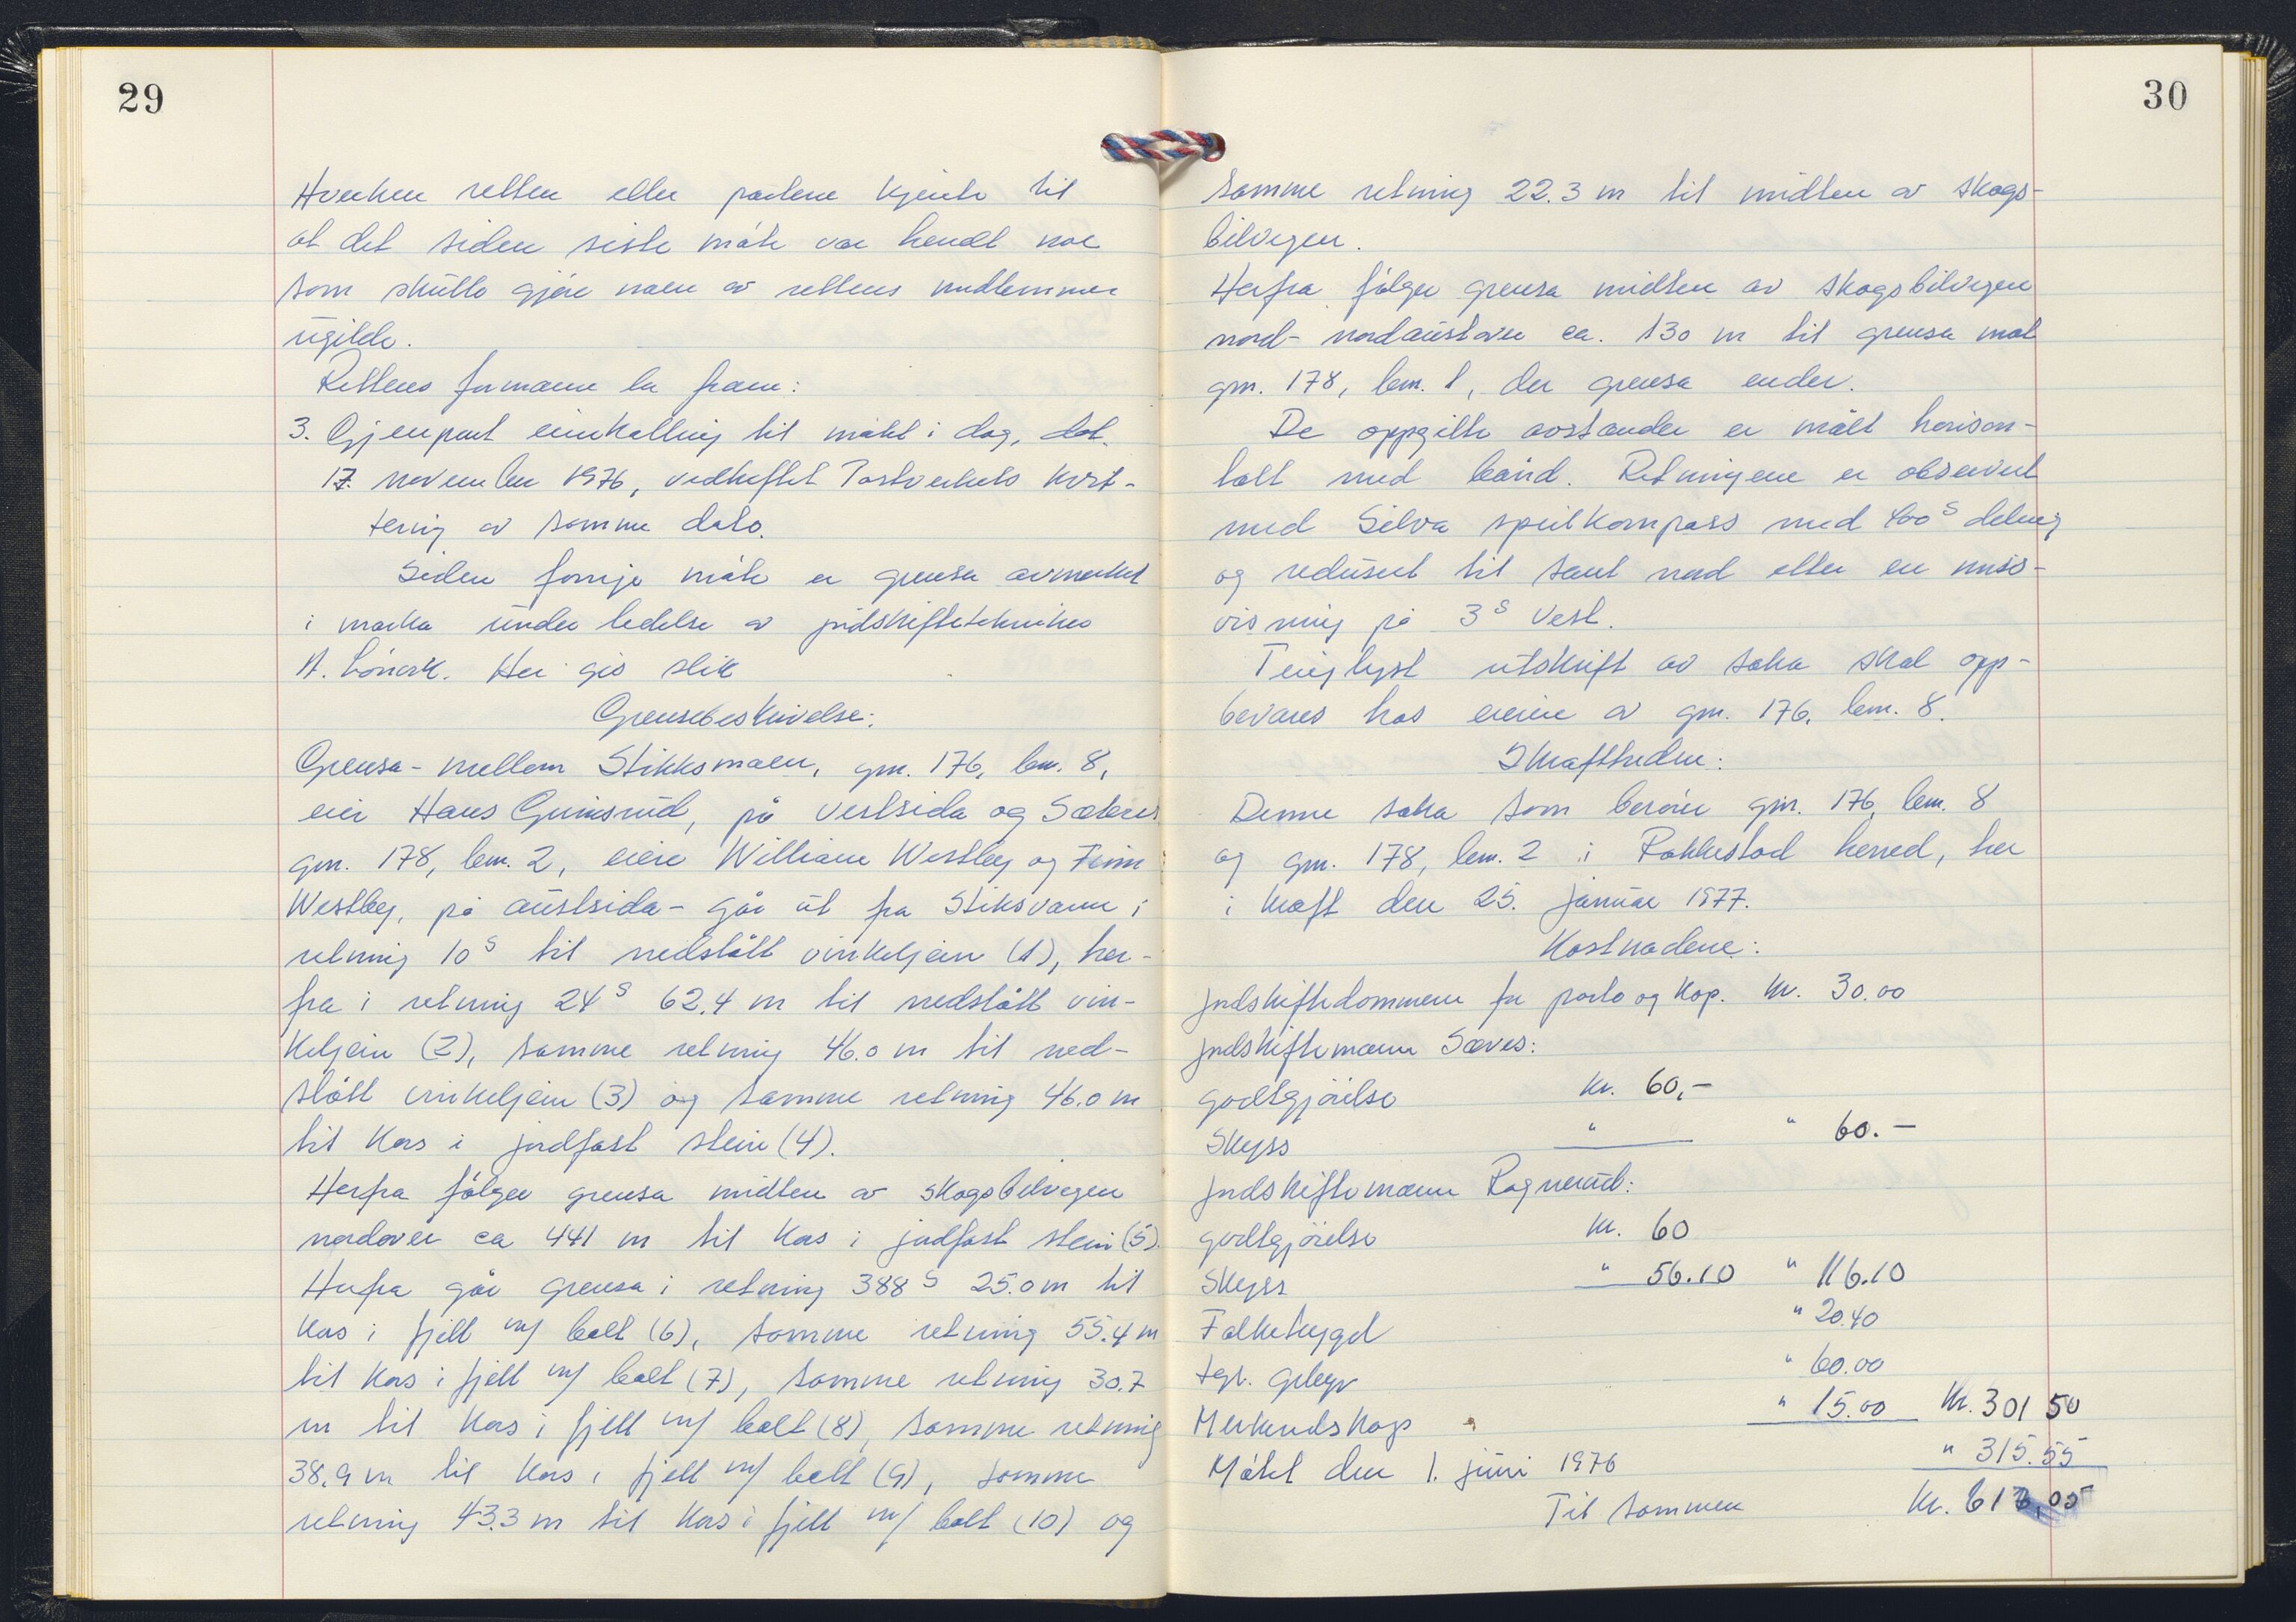 29
Hverken retten eller partene kjente til
at det siden siste møte var hendt noe
som skulle gjøre noen av rettens medlemmer
ugilde.
Rettens formann la fram:
3. Gjenpart innkalling til møtet i dag, dat.
17. november 1976, vedheftet Postverkets kvit-
tering av samme dato.
Siden forrige møte er grensa avmerket
i marka under ledelse av jordskiftetekniker
A. Lønvik. Her gis slik
Grensebeskrivelse:
Grensa - mellom Stikksmoen, gnr. 176, bnr. 8,
eier Hans Grimsrud, på vestsida og Sæteres
gnr. 178, bnr. 2, eiere William Westby og Finn
Westby, på austsida - går ut fra Stiksvann i
retning 10 g til nedslått vinkeljern (1), her-
fra i retning 24 g 62.4 m til nedslått vin-
keljern (2), samme retning 46.0 m til ned-
slått vinkeljern (3) og samme retning 46.0 m
til kors i jordfast stein (4).
Herfra følger grensa midten av skogsbilvegen
nordover ca 441 m til kors i jordfast stein (5).
Herfra går grensa i retning 388 g 25.0 m til
kors i fjell m/ bolt (6), samme retning 55.4 m
til kors i fjell m/ bolt (7), samme retning 30.7
m til kors i fjell m/ bolt (8), samme retning
38.9 m til kors i fjell m/ bolt (9), samme
retning 43.3 m til kors i fjell m/ bolt (10) og
30
samme retning 22.3 m til midten av skogs-
bilvegen.
Herfra følger grensa midten av skogsbilvegen
nord- nordaustover ca. 130 m til grensa mot
gnr. 178, bnr. 1, der grensa ender.
De oppgitte avstander er målt horison-
talt med bånd. Retningene er observert
med Silva speilkompass med 400 g deling
og redusert til sant nord etter en miss-
visning på 3 g vest.
Tinglyst utskrift av saka skal opp-
bevares hos eieren av gnr. 176, bnr. 8.
Ikrafttreden:
Denne saka som berører gnr. 176, bnr. 8
og gnr. 178, bnr. 2 i Rakkestad herred, trer
i kraft den 25. januar 1977.
Kostnadene:
Jordskiftedommeren for porto og kop. kr. 30.00
Jordskiftemann Sæves:
godtgjørelse kr. 60,-
Skyss " " 60.-
Jordskiftemann Ragnerud:
godtgjørelse kr. 60
Skyss " 56.10 " 116.10
Folketrygd " 20.40
tgl. gebyr " 60.00
Merkendskap " 15.00 kr. 301 50
Møtet den 1. juni 1976 " 315.55
Til sammen kr. 617,05